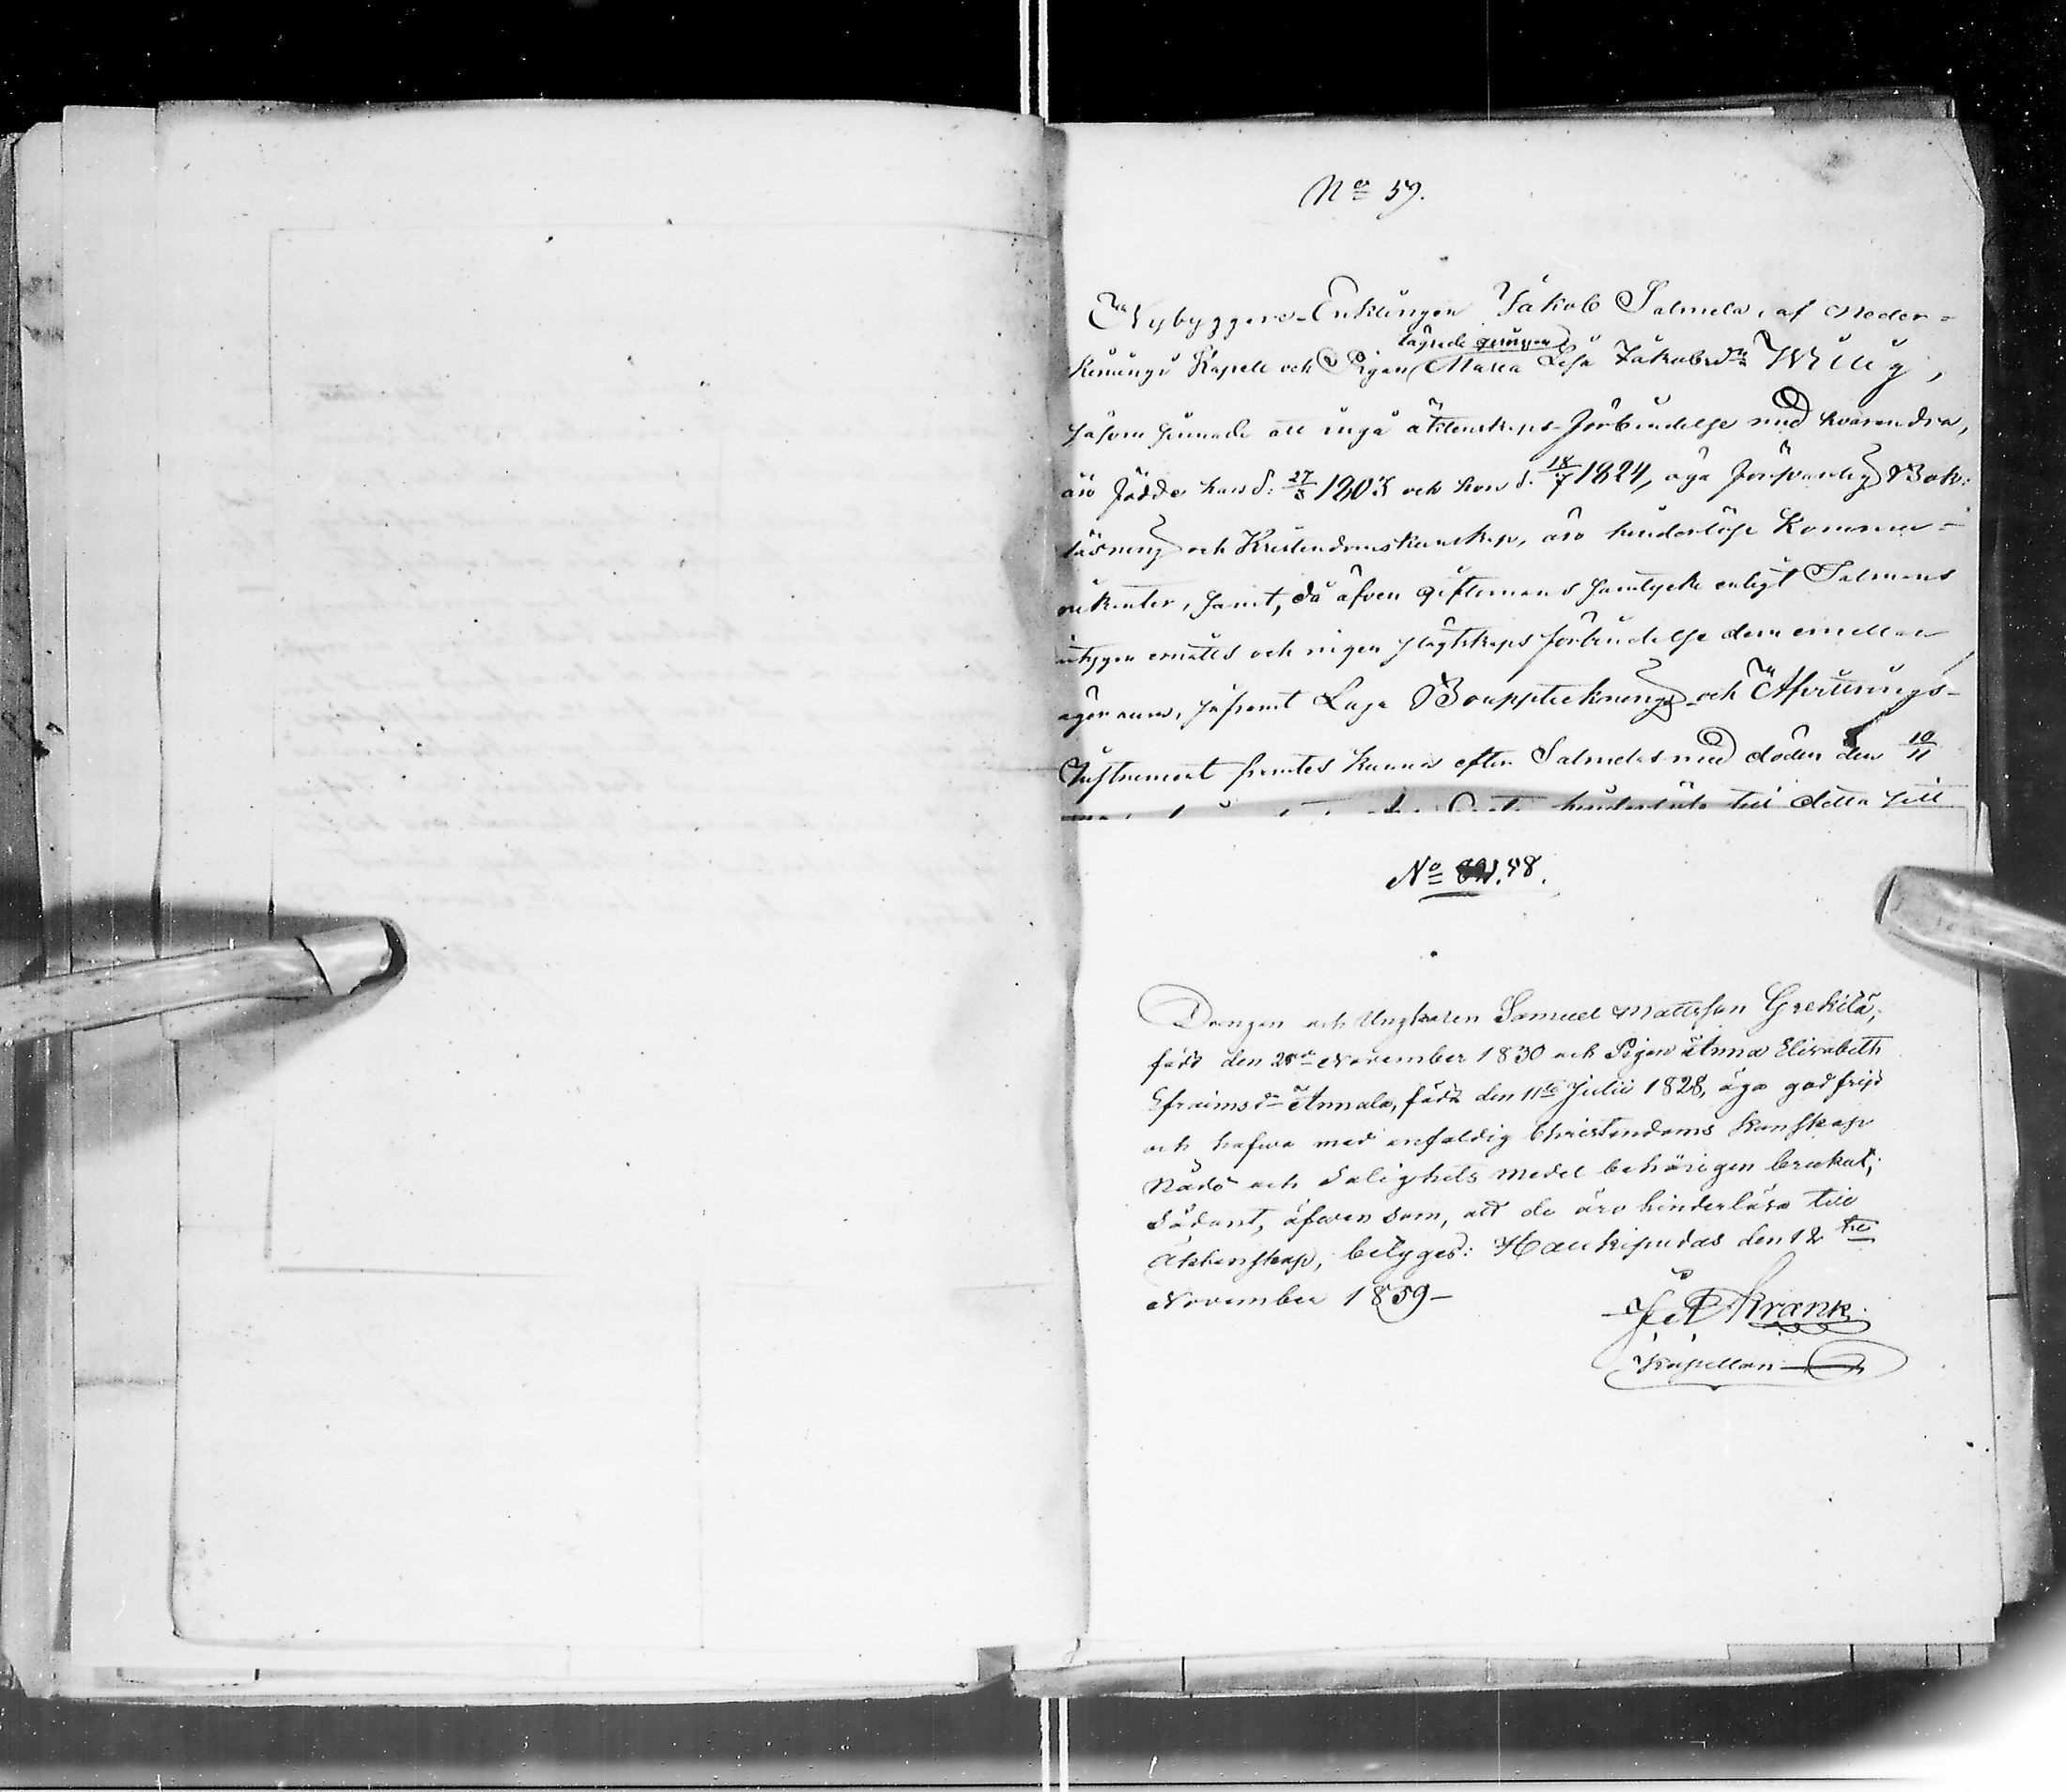 No 59.
Nybyggare-Enklingen Jakob Salmela, af Neder-
Kiminge Kapell och Pigan Maria Lisa Jakobsdr Willig,
såsom sinnade att ingå äktenskaps-förbindelse med hvarandra,
äro födde han d. 27/3 1803 och hon d. 18/7 1824, äga försvarlig Bok-
läsning och Kristendomskunskap, äro hinderlöse Kommu-
nikanter, samt, då äfven giftomans samtycke enligt Salmens
intygan ernåtts och ingen slägtskaps förbindelse dem emellan
äger rum, såsomt Laga Bouppteknings- och Afvittrings-
Instrument hemtes kunna efter Salmelas med döden den 10/11
hinderlöse till detta sitt
No 58.
Drengen och Ungkarlen Samuel Mattsson Grekilä,
född den 28de November 1830 och Pigan Anna Elisabeth
Efraimsdr Annala, född den 11te Julii 1828, äga god frejd
och hafwa med enfaldig Christendoms kunskap
Nådes och Salighets medel behörigen brukat;
Sådant, äfwen som, att de äro hinderlösa till
Äktenskap, betygas: Haukipudas den 12te
November 1859-
J. A. Krank.
Kapellan